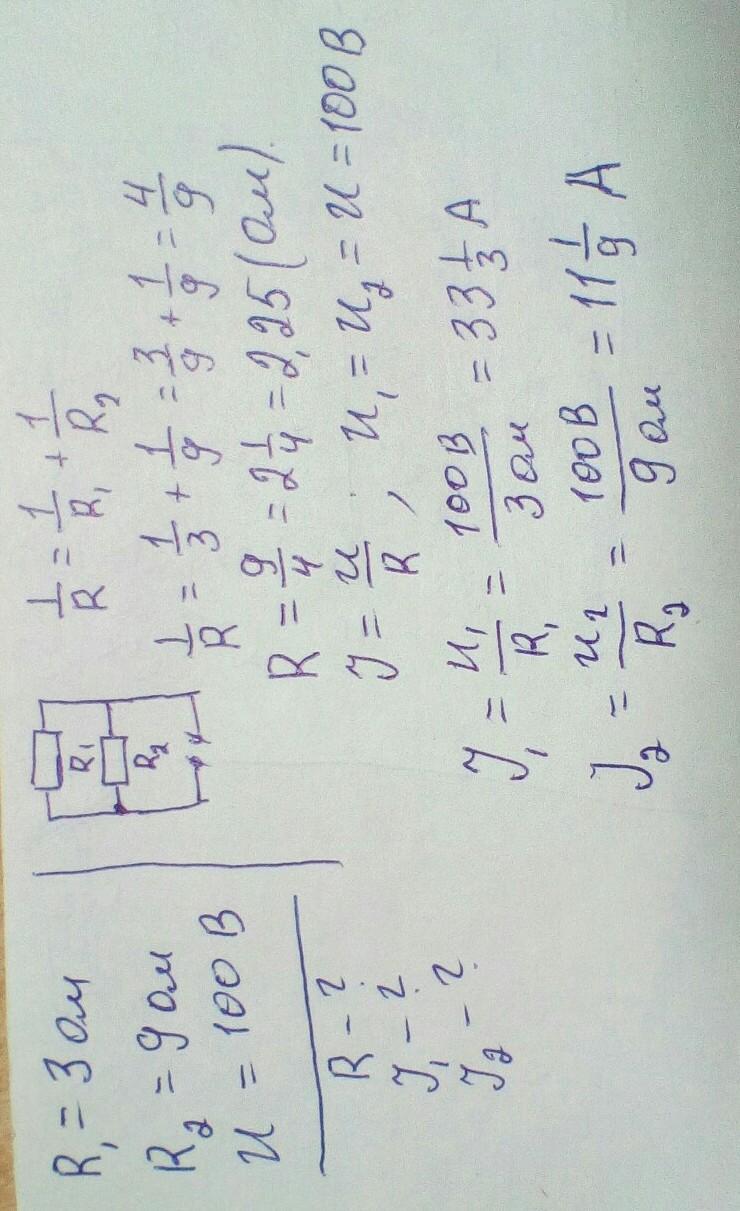 R₁ = 3 ом
R₂ = 9 ом
U = 100 В
R - ?
J₁ - ?
J₂ - ?
R₁
R₂
1/R = 1/R₁ + 1/R₂
1/R = 1/3 + 1/9 = 3/9 + 1/9 = 4/9
R = 9/4 = 2 1/4 = 2,25 (ом).
J = U/R , U₁ = U₂ = U = 100 В
J₁ = U₁/R₁ = 100 В/3 ом = 33 1/3 А
J₂ = U₂/R₂ = 100 В/9 ом = 11 1/9 А